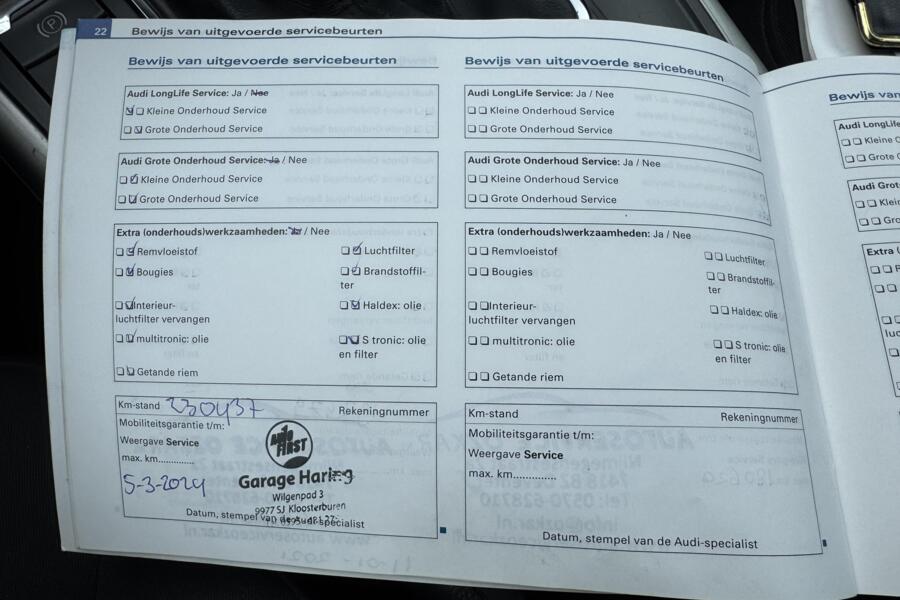 22 Bewijs van uitgevoerde servicebeurten
Bewijs van uitgevoerde servicebeurten
Audi LongLife Service: Ja / Nee
Kleine Onderhoud Service
Grote Onderhoud Service
Audi Grote Onderhoud Service: Ja / Nee
Kleine Onderhoud Service
Grote Onderhoud Service
Extra (onderhouds)werkzaamheden: Ja / Nee
Remvloeistof
Luchtfilter
Bougies
Brandstoffil-
ter
Interieur-
luchtfilter vervangen
Haldex: olie
multitronic: olie
S tronic: olie
en filter
Getande riem
Km-stand 230437
Rekeningnummer
Mobiliteitsgarantie t/m:
Weergave Service
max. km.............
5-3-2024
AUTO
FIRST
Garage Haring
Wilgenpad 3
9977 SJ Kloosterburen
Datum, stempel van de Audi-specialist
Bewijs van uitgevoerde servicebeurten
Audi LongLife Service: Ja / Nee
Kleine Onderhoud Service
Grote Onderhoud Service
Audi Grote Onderhoud Service: Ja / Nee
Kleine Onderhoud Service
Grote Onderhoud Service
Extra (onderhouds)werkzaamheden: Ja / Nee
Remvloeistof
Luchtfilter
Bougies
Brandstoffil-
ter
Interieur-
luchtfilter vervangen
Haldex: olie
multitronic: olie
S tronic: olie
en filter
Getande riem
Km-stand
Rekeningnummer
Mobiliteitsgarantie t/m:
Weergave Service
max. km.............
Datum, stempel van de Audi-specialist
Bewijs van
Audi LongLife
Kleine O
Grote O
Audi Grot
Klei
Gro
Extra (